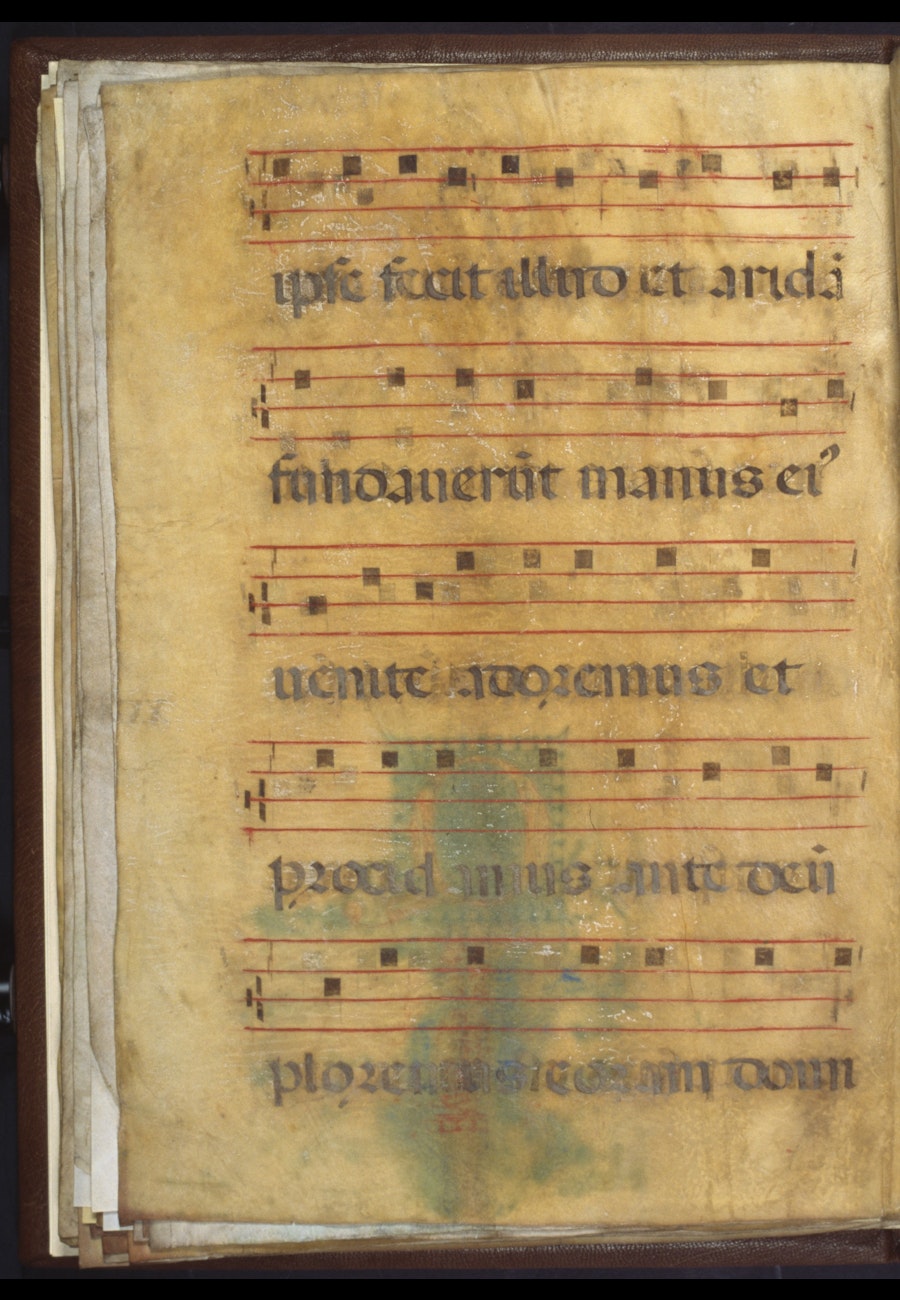 ipse fecit illud et aridā
fundauerūt manus ei⁹
uenite adoremus et
procidamus ante deū
ploremus coram domi